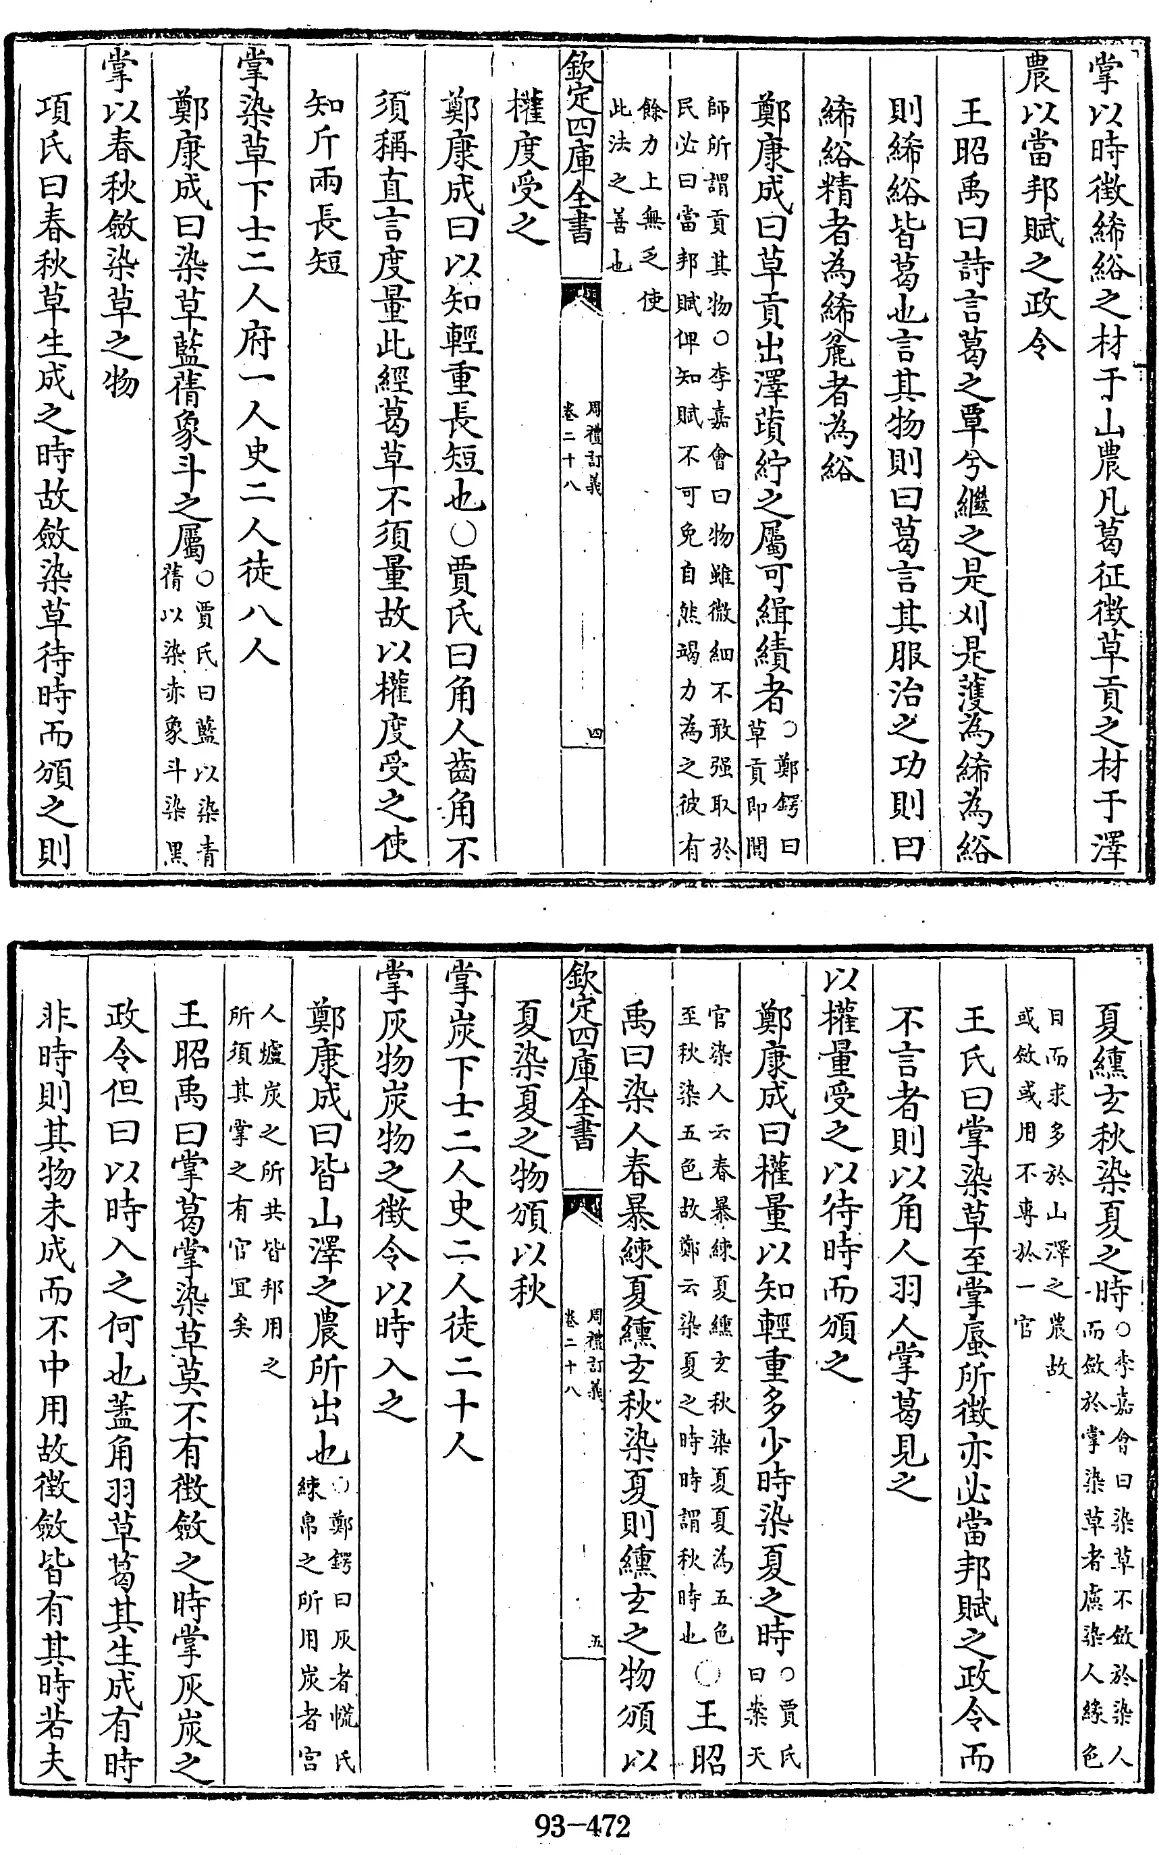 掌以時徴絺綌之材于山農凡葛征徴草貢之材于澤
農以當邦賦之政令
王昭禹曰詩言葛之覃兮繼之是刈是濩為絺為綌
則絺綌皆葛也言其物則曰葛言其服治之功則曰
絺綌精者為絺麄者為綌
鄭康成曰草貢出澤蕡紵之屬可緝績者○鄭鍔曰
草貢即閭
師所謂貢其物○李嘉會曰物雖微細不敢强取於
民必曰當邦賦俾知賦不可免自然竭力為之彼有
餘力上無乏使
此法之善也
欽定四庫全書
周禮訂義
卷二十八
四
權度受之
鄭康成曰以知輕重長短也○賈氏曰角人齒角不
須稱直言度量此經葛草不須量故以權度受之使
知斤兩長短
掌染草下士二人府一人史二人徒八人
鄭康成曰染草藍蒨象斗之屬○賈氏曰藍以染青
蒨以染赤象斗染黑
掌以春秋斂染草之物
項氏曰春秋草生成之時故斂染草待時而頒之則
夏纁玄秋染夏之時○李嘉會曰染草不斂於染人
而斂於掌染草者慮染人緣色
目而求多於山澤之農故
或斂或用不專於一官
王氏曰掌染草至掌蜃所徴亦必當邦賦之政令而
不言者則以角人羽人掌葛見之
以權量受之以待時而頒之
鄭康成曰權量以知輕重多少時染夏之時○賈氏
曰案天
官染人云春暴練夏纁玄秋染夏夏為五色
至秋染五色故鄭云染夏之時時謂秋時也○王昭
禹曰染人春暴練夏纁玄秋染夏則纁玄之物頒以
欽定四庫全書
周禮訂義
卷二十八
五
夏染夏之物頒以秋
掌炭下士二人史二人徒二十人
掌灰物炭物之徴令以時入之
鄭康成曰皆山澤之農所出也○鄭鍔曰灰者㡛氏
練帛之所用炭者宫
人爐炭之所共皆邦用之
所須其掌之有官宜矣
王昭禹曰掌葛掌染草莫不有徴斂之時掌灰炭之
政令但曰以時入之何也蓋角羽草葛其生成有時
非時則其物未成而不中用故徴斂皆有其時若夫
93-472